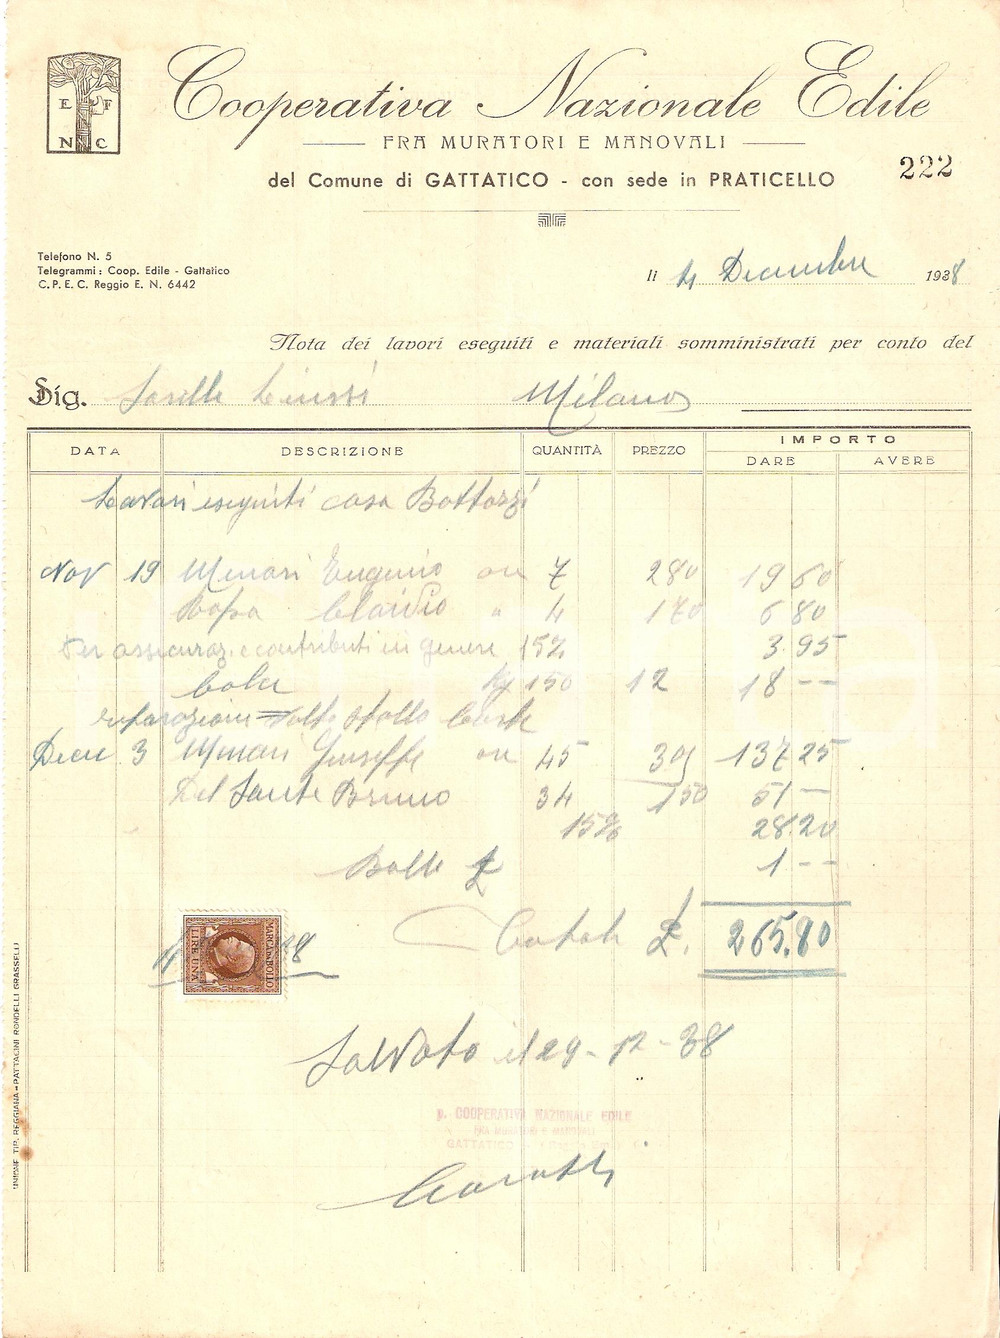 E F
N C
Cooperativa Nazionale Edile
FRA MURATORI E MANOVALI
del Comune di GATTATICO - con sede in PRATICELLO
222
Telefono N. 5
Telegrammi: Coop. Edile - Gattatico
C. P. E. C. Reggio E. N. 6442
li 4 Decembre 1938
Nota dei lavori eseguiti e materiali somministrati per conto del
Sig. Milano
DATA DESCRIZIONE QUANTITÀ PREZZO IMPORTO
DARE AVERE
Lavori eseguiti casa Bottazzi
Nov 19 Menari Eugenio ore 7 280 19 60
Claudio " 4 170 6 80
Per assicuraz. e contributi in genere 15% 3.95
Calce Kg 150 12 18 --
riparazione
Dece 3 Menari Giuseppe ore 45 305 137 25
Del Sante Bruno 34 150 51 --
15% 28.20
Bolle £ 1 --
Totale £. 265.80
MARCA DA BOLLO
LIRE UNA
38
Saldato il 29-12-38
p. COOPERATIVA NAZIONALE EDILE
FRA MURATORI E MANOVALI
GATTATICO
UNIONE TIP. REGGIANA - PATTACINI RONDELLI GRASSELLI